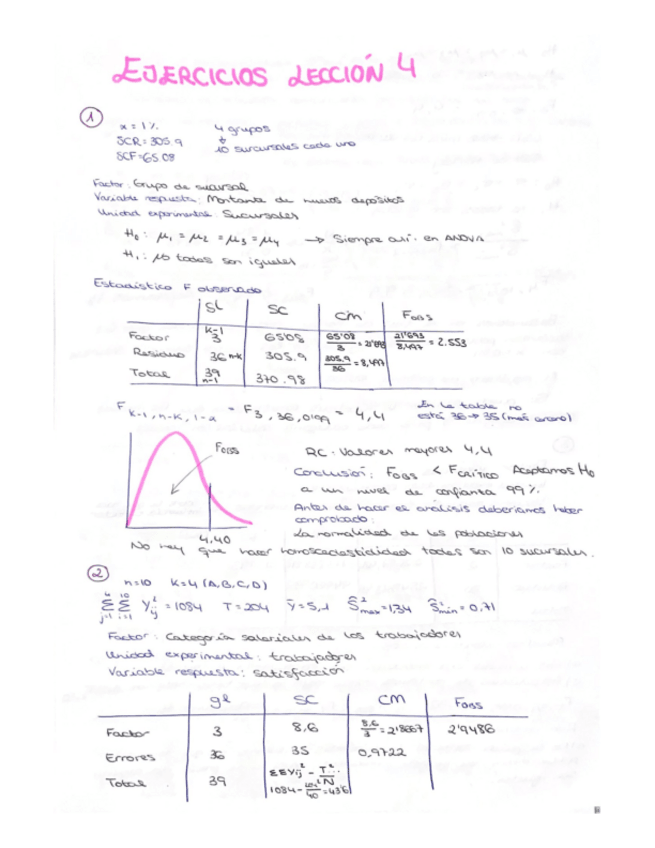 EJERCICIOS LECCIÓN 4
1
α = 1% 4 grupos
SCR = 305.9 ↓
SCF = 65.08 10 sucursales cada uno
Factor: Grupo de sucursal
Variable respuesta: Montante de nuevos depósitos
Unidad experimental: Sucursales
H₀: μ₁ = μ₂ = μ₃ = μ₄ → Siempre así en ANOVA
H₁: No todas son iguales
Estadístico F observado
gl SC CM FOBS
Factor k-1 3 65'08 65'08/3 = 21'693 21'693/8,497 = 2.553
Residuo 36 n-k 305.9 305.9/36 = 8,497
Total 39 n-1 370.98
F k-1, n-k, 1-α = F 3, 36, 0'99 = 4,4 En la tabla no
está 36 → 35 (más cercano)
FOBS
4,40
RC: Valores mayores 4,4
Conclusión: FOBS < FCRÍTICO Aceptamos H₀
a un nivel de confianza 99%
Antes de hacer el análisis deberíamos haber
comprobado:
La normalidad de las poblaciones
No hay que hacer homoscedasticidad todas son 10 sucursales.
2
n=10 K=4 (A, B, C, D)
4 Σ j=1 10 Σ i=1 Y²ij = 1084 T = 204 ȳ = 5,1 Ŝ²max = 1,34 Ŝ²min = 0,71
Factor: Categoría salariales de los trabajadores
Unidad experimental: trabajadores
Variable respuesta: satisfacción
gl SC CM FOBS
Factor 3 8,6 8,6/3 = 2'8667 2'9486
Errores 36 35 0,9722
Total 39 ΣΣY²ij - T²../N
1084 - 204²/40 = 43'6